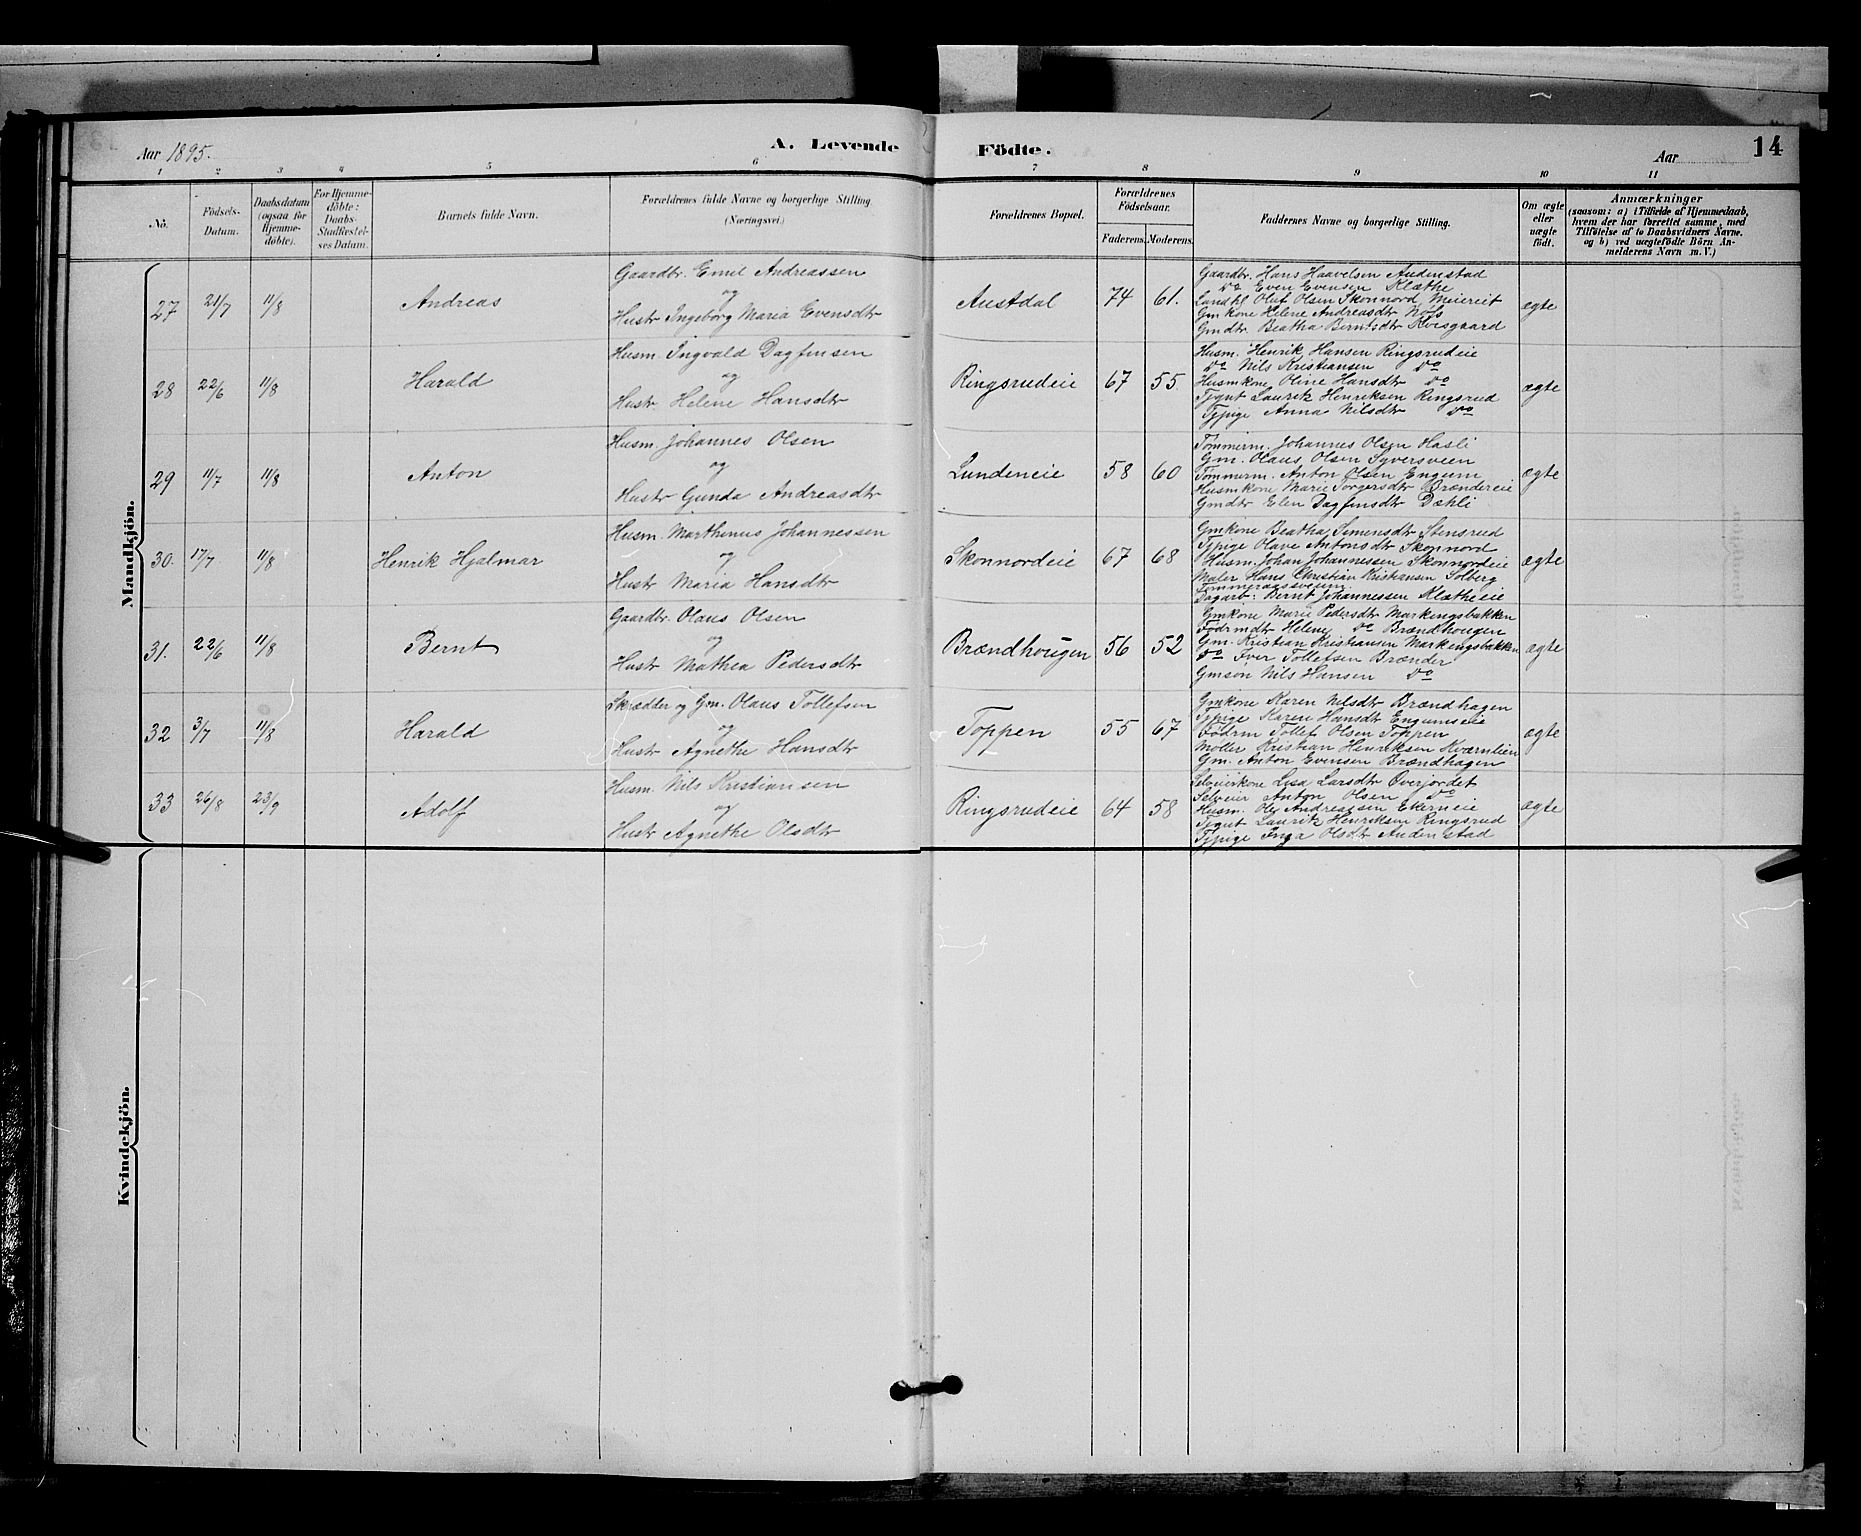 Aar 1895.
A. Levende Födte.
Aar
14
1 2 3 4 5 6 7 8 9 10 11
No.
Födsels-Datum.
Daabsdatum (ogsaa for Hjemmedöbte).
For Hjemmedöbte: Daabs-Stadfæstelses Datum.
Barnets fulde Navn.
Forældrenes fulde Navne og borgerlige Stilling. (Næringsvei.)
Forældrenes Bopæl.
Forældrenes Födselsaar.
Faderens. Moderens.
Faddernes Navne og borgerlige Stilling.
Om ægte eller uægte födt.
Anmærkninger
(saasom: a) i Tilfælde af Hjemmedaab, hvem der har forrettet samme, med Tilföielse af to Daabsvidners Navne. og b) ved uægtefödte Börn Anmelderens Navn m. V.)
Mandkjön.
27 21/7 11/8 Andreas
Gaardbr. Emil Andreassen
og
Hustr Ingeborg Maria Evensdtr
Austdal 74 61.
Gaardbr. Hans Haavelsen Audenstad
Do Even Evensen Klæthe
Landhl. Oluf Olsen Skonnord Meieriet
Gmkone Helene Andreasdtr Nøfs
Gmdtr. Beatha Berntsdtr Kvisgaard
ægte
28 22/6 11/8 Harald
Husm. Ingvald Dagfinsen
og
Hustr. Helene Hansdtr
Ringsrudeie 67 55.
Husm. Henrik Hansen Ringsrudeie
Do Nils Kristiansen Do
Husmkone Oline Hansdtr Do
Tjgut Lauritz Henriksen Ringsrud
Tjpige Anna Nilsdtr Do
ægte
29 11/7 11/8 Anton
Husm. Johannes Olsen
og
Hustr Gunda Andreasdtr
Lundeneie 58 60
Tømmerm. Johannes Olsen Hasli
Gm. Olaus Olsen Syversveen
Tømmerm. Anton Olsen Engum
Husmkone Marie Torgersdtr Brændereie
Gmdtr Elen Dagfinsdtr Dæhli
ægte
30. 17/7 11/8 Henrik Hjalmar
Husm. Marthinus Johannessen
og
Hustr Maria Hansdtr
Skonnordeie 67 68
Gmkone Beatha Simensdtr Stensrud
Tjpige Olave Antonsdtr Skonnord
Husm. Johan Johannessen Skonnordeie
Maler Hans Christian Kristiansen Solberg
Dagarb: Bernt Johannessen Klætheeie
ægte
31. 22/6 11/8 Bernt
Gaardbr. Olaus Olsen
og
Hustr Mathea Pedersdtr
Brændhougen 56 52
Gmkone Marie Pedersdtr Markengsbakken
Födrmdtr Helene Do Brændhougen
Gm. Kristian Kristiansen Markengsbakken
Do Iver Tollefsen Brænder
Gmsøn Nils Hansen Do
ægte
32 3/7 11/8 Harald
Skrædder og Gm. Olaus Tollefsen
og
Hustr Agnethe Hansdtr
Toppen 55 67
Gmkone Karen Nilsdtr Brændhagen
Tjpige Karen Hansdtr Engumseie
Födrm Tollef Olsen Toppen
Møller Kristian Henriksen Kværnlien
Gm. Anton Evensen Brændhagen
ægte
33 26/8 23/9 Adolf
Husm. Nils Kristiansen
og
Hustr Agnethe Olsdtr
Ringsrudeie 64 58
Selveierkone Lisa Larsdtr Overjordet
Selveier Anton Olsen Do
Husm. Ole Andreassen Ekerneie
Tjgut Lauritz Henriksen Ringsrud
Tjpige Inga Olsdtr Audenstad
ægte
Kvindekjön.